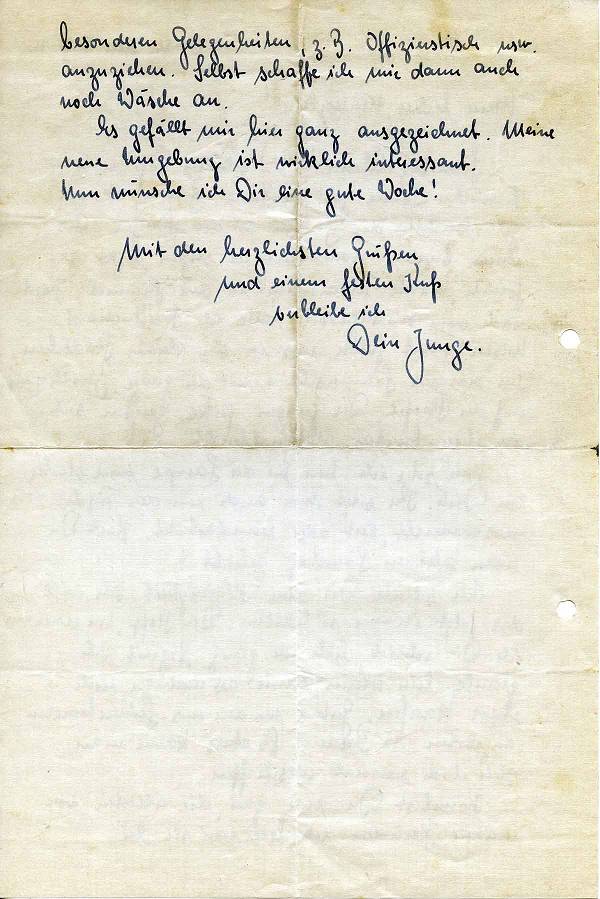 besonderen Gelegenheiten, z. B. Offizierstisch usw.
anzuziehen. Selbst schaffe ich mir dann auch
noch Wäsche an.
Es gefällt mir hier ganz ausgezeichnet. Meine
neue Umgebung ist wirklich interessant.
Nun wünsche ich Dir eine gute Woche!
Mit den herzlichsten Grüßen,
und einem festen Kuß
verbleibe ich
Dein Junge.